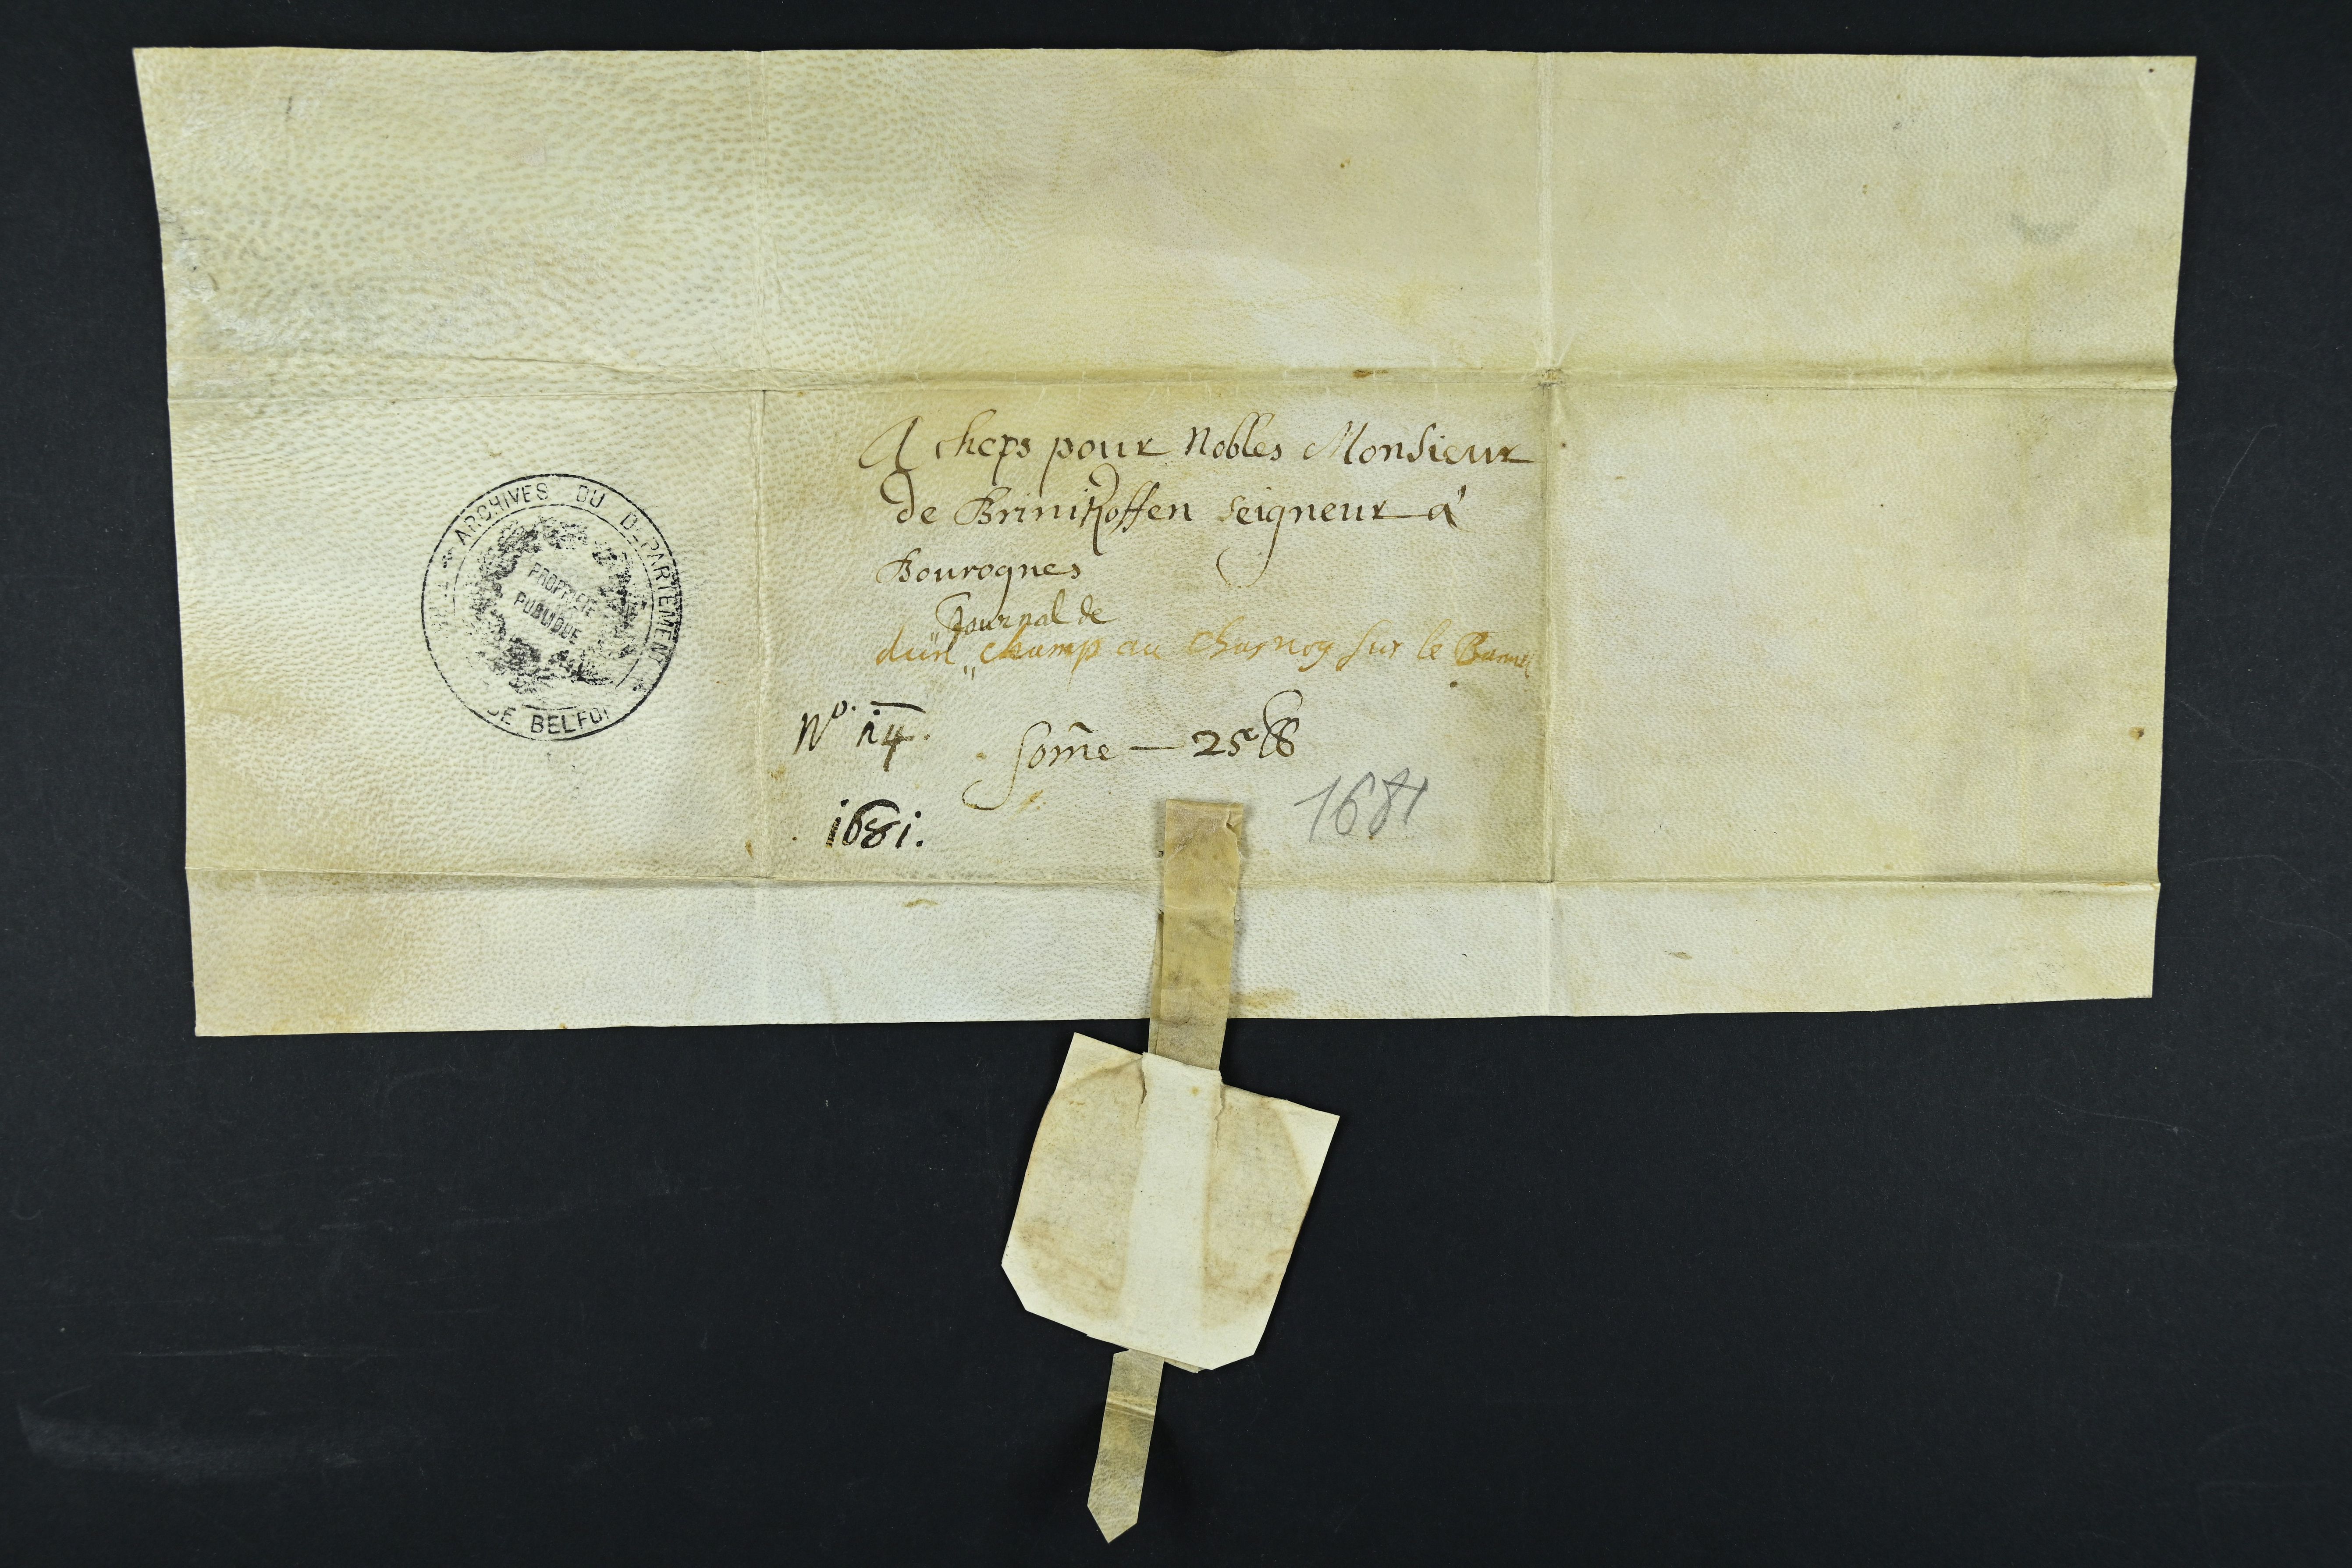 Acheps pour Nobles Monsieur
de Brinikoffen seigneur à
Bourognes
Journal de
dun champ au Chasnoy sur le
No. 14.
some — 25 lb
1681.
1681
ARCHIVES DU DEPARTEMENT
DE BELFO
PROPRIETE
PUBLIQUE